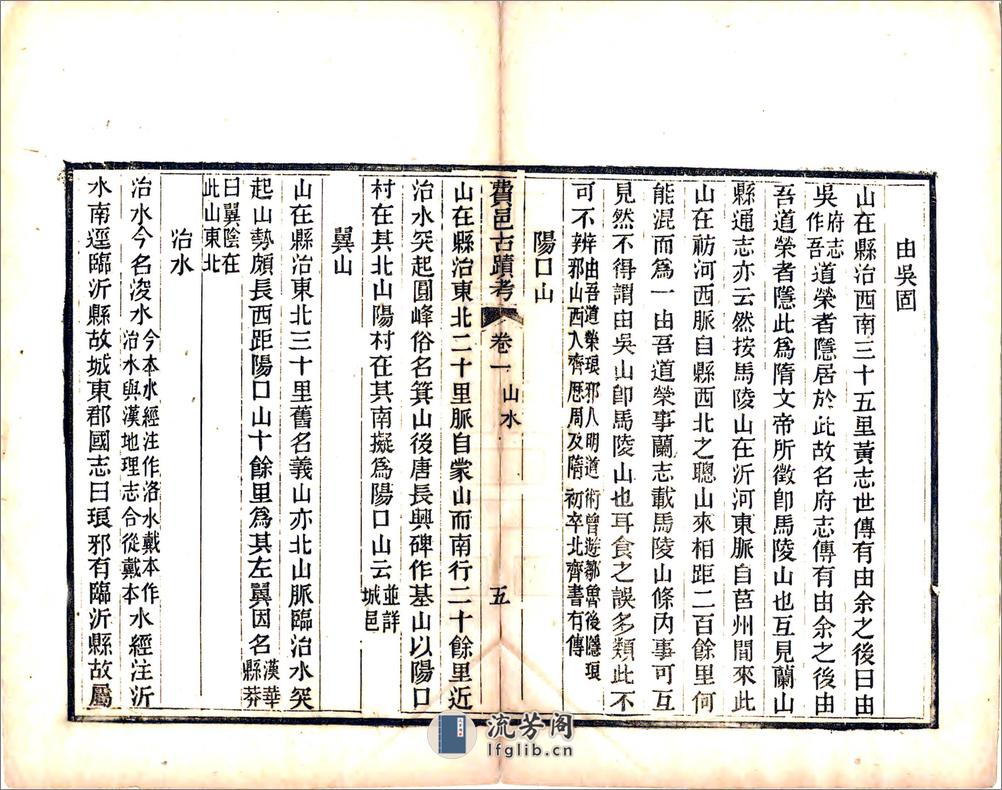 由吳固
山在縣治西南三十五里黃志世傳有由余之後曰由
吳府志作吾道榮者隱居於此故名府志傳有由余之後由
吾道榮者隱此爲隋文帝所徵卽馬陵山也互見蘭山
縣通志亦云然按馬陵山在沂河東脈自莒州間來此
山在祊河西脈自縣西北之聰山來相距二百餘里何
能混而爲一由吾道榮事蘭志載馬陵山條內事可互
見然不得謂由吳山卽馬陵山也耳食之誤多類此不
可不辨由吾道榮琅邪人明道術曾遊鄒魯後隱琅邪山西入齊厯周及隋初卒北齊書有傳
陽口山
費邑古蹟考 卷一 山水 五
山在縣治東北二十里脈自蒙山而南行二十餘里近
治水突起圓峰俗名箕山後唐長興碑作基山以陽口
村在其北山陽村在其南擬爲陽口山云並詳城邑
翼山
山在縣治東北三十里舊名義山亦北山脈臨治水突
起山勢頗長西距陽口山十餘里爲其左翼因名漢華縣莽
曰翼陰在此山東北
治水
治水今名浚水今本水經注作洛水戴本作治水與漢地理志合從戴本水經注沂
水南逕臨沂縣故城東郡國志曰琅邪有臨沂縣故屬
流芳阁
lfglib.cn